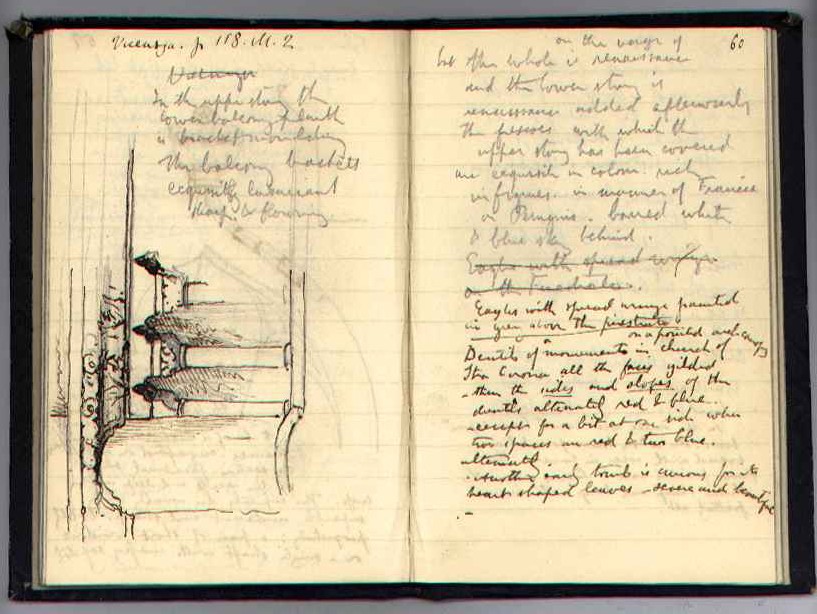 Vicenza. p 118. M. 2
In the upper story the
lower balcony plinth
is bracket moulding
the balcony brackets
exquisitely luxuriant
sharp & flowing
60
on the verge of
but the whole is renaissance
and the lower story is
renaissance added afterwards
the frescoes with which the
upper story has been covered
are exquisite in colour. rich
in figures. in manner of Francia
or Perugino. barred white
& blue sky behind.
Eagles with spread wings
on the
Eagles with spread wings painted
in grey over the
on a pointed arch canopy
Dentils of monuments in church of
Sta Corona all the faces gilded
then the sides and slopes of the
dentils alternately red & blue.
except for a bit at one side when
two spaces are red & two blue.
alternately
Another early tomb is curious for its
heart shaped leaves - severe and beautiful